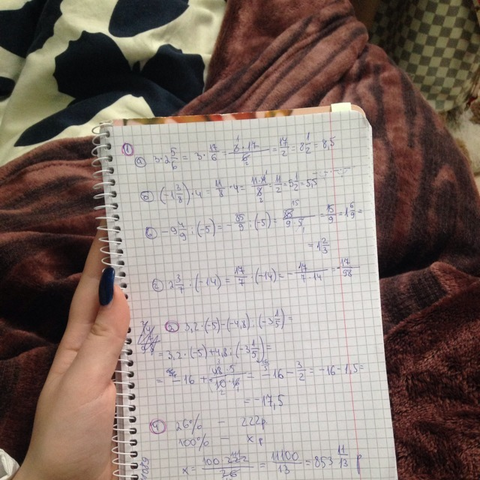 1
а) 3·2 5/6 = 3·17/6 = 3·17/6 = 17/2 = 8 1/2 = 8,5
б) (-1 3/8)·4 = 11/8·4 = 11·4/8 = 11/2 = 5 1/2 = 5,5
-9 4/9 : (-5) = -85/9 : (-5) = 85/9·5 = 15/9 = 1 6/9 =
= 1 2/3
2 3/7 : (-14) = 17/7 : (-14) = -17/7·14 = -17/98
3,2·(-5)-(-4,8):(-3 1/5) =
= 3,2·(-5)+4,8:(-3 1/5) =
-16 - 3/2 = -16-1,5 =
= -17,5
4
26% — 222р
100% — x р
x = 100·222/26 = 11100/13 = 853 11/13 р